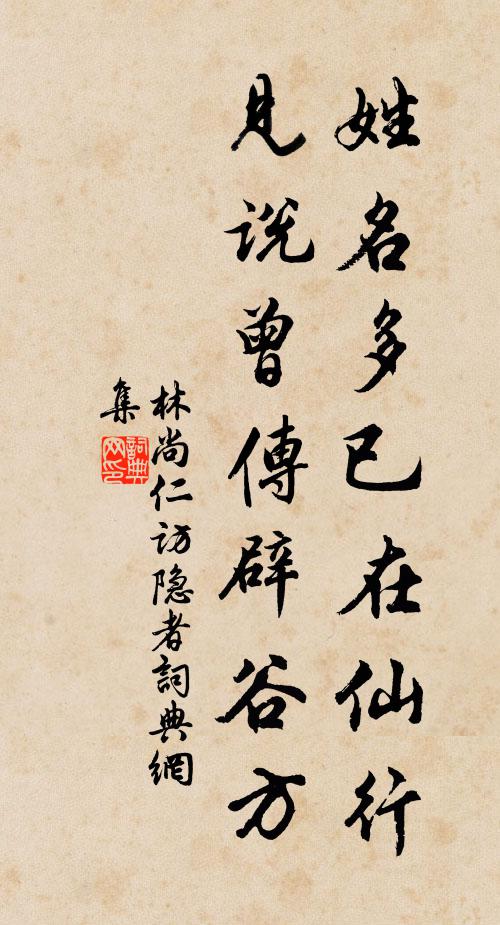 姓名多已在仙行
見説曾傳辟谷方
林尚仁访隐者詞典網
集
詞典
网印